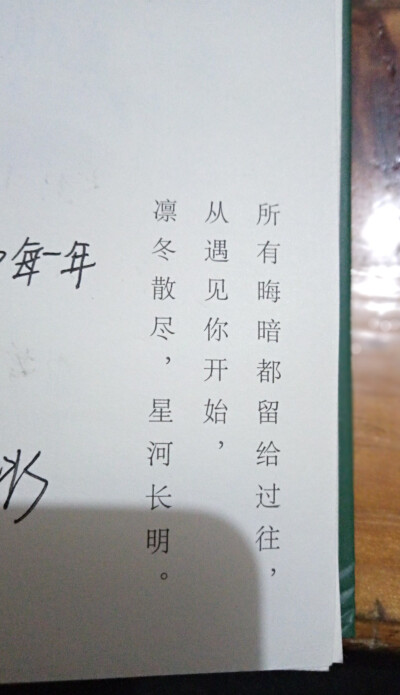 所有晦暗都留给过往，
从遇见你开始，
凛冬散尽，星河长明。
每一年